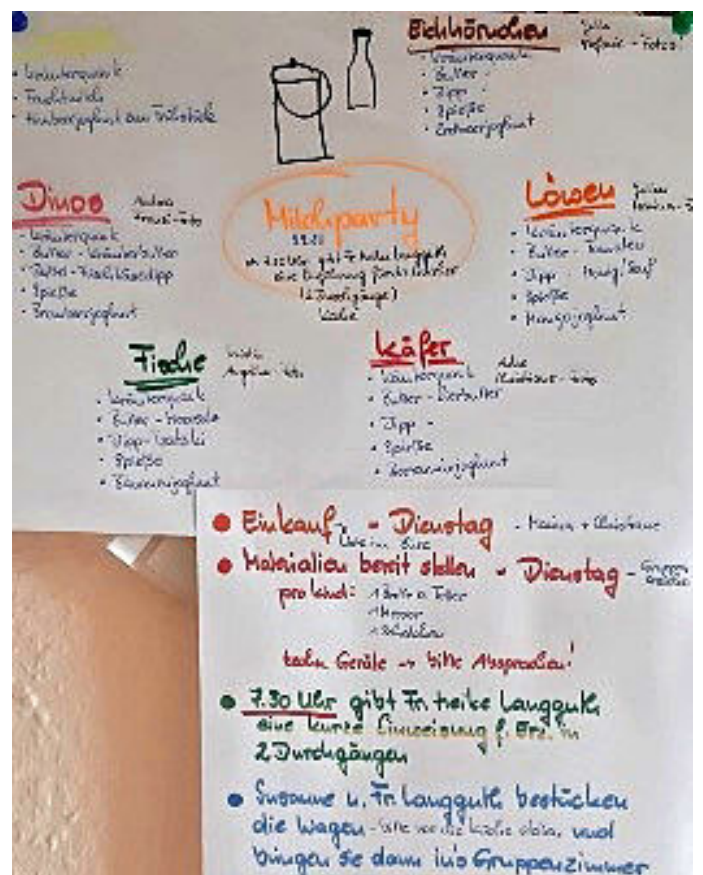 • Kräuterquark
• Fruchtmilch
• Himbeerjoghurt zum Frühstück
Eichhörnchen
• Kräuterquark
• Butter -
• Dipp -
• Spieße
• Erdbeerjoghurt
Dinos
Andrea
- Foto
• Kräuterquark
• Butter - Kräuterbutter
• Dipp - Frischkäsedipp
• Spieße
• Brombeerjoghurt
Milchparty
gibt Fr. Heike Langguth
eine Einführung
(2 Durchgänge)
Küche
Löwen
• Kräuterquark
• Butter -
• Dipp - Honig/Senf
• Spieße
• Mangojoghurt
Fische
Angelika - Foto
• Kräuterquark
• Butter -
• Dipp - Zatziki
• Spieße
• Bananenjoghurt
Käfer
Christiane - Foto
• Kräuterquark
• Butter - Eierbutter
• Dipp -
• Spieße
• joghurt
• Einkauf - Dienstag - + Christiane
• Materialien bereit stellen - Dienstag - Gruppen
pro Kind: 1 Teller
1 Messer
techn. Geräte → bitte Absprachen!
• 7.30 Uhr gibt Fr. Heike Langguth
eine kurze Einweisung f. Erz. in
2 Durchgängen
• Susanne u. Fr. Langguth bestücken
die Wagen - bitte vor die Küche stellen, und
bringen sie dann in's Gruppenzimmer